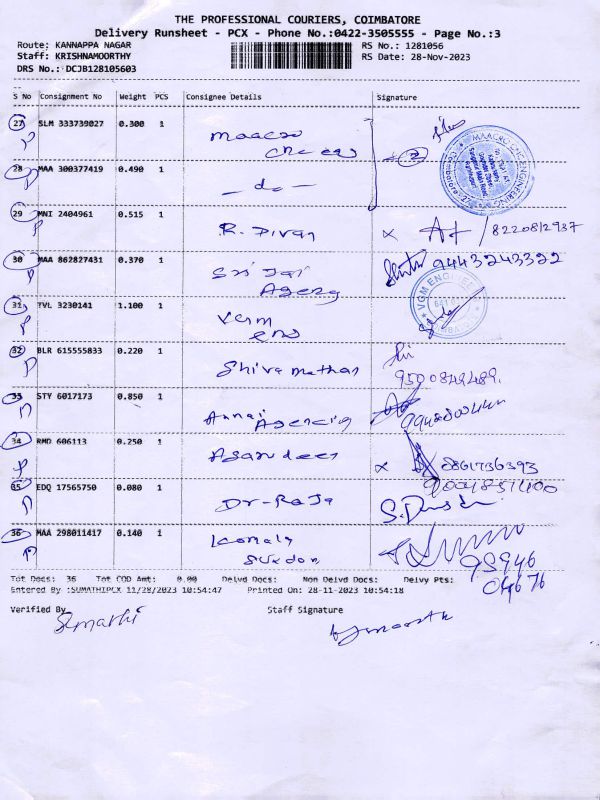 THE PROFESSIONAL COURIERS, COIMBATORE
Delivery Runsheet - PCX - Phone No.:0422-3505555 - Page No.:3
Route: KANNAPPA NAGAR RS No.: 1281056
Staff: KRISHNAMOORTHY RS Date: 28-Nov-2023
DRS No.: DCJB128105603
S No Consignment No Weight PCS Consignee Details Signature
27 SLM 333739027 0.300 1 Maacro
28 MAA 300377419 0.490 1 - do -
MAACRO CNC ENGINEERING
29 MNI 2404961 0.515 1 R. Divan x 8220812937
30 MAA 862827431 0.370 1 Sri Jai 9443243322
Agency
31 TVL 3230141 1.100 1 VGM
VGM ENGINEERS
COIMBATORE
32 BLR 615555833 0.220 1 Shiva
9500849489.
33 STY 6017173 0.850 1 Annai
34 RMD 606113 0.250 1 x 8861736393
35 EDQ 17565750 0.080 1 Dr-Raja
36 MAA 298011417 0.140 1
98946
Tot Docs: 36 Tot COD Amt: 0.00 Delvd Docs: Non Delvd Docs: Delvy Pts:
Entered By :SUMATHIPCX 11/28/2023 10:54:47 Printed On: 28-11-2023 10:54:18
Verified By Staff Signature
Sumathi